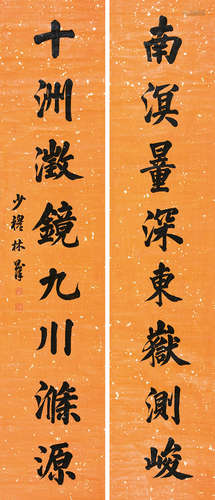 南溟量深東嶽測峻
十洲澂鏡九川滌源
少穆林